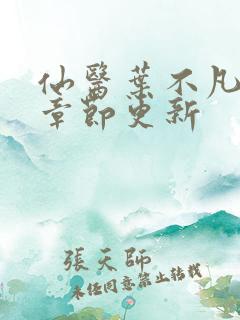 仙醫葉不凡
章節更新
張天師
未經同意禁止轉載